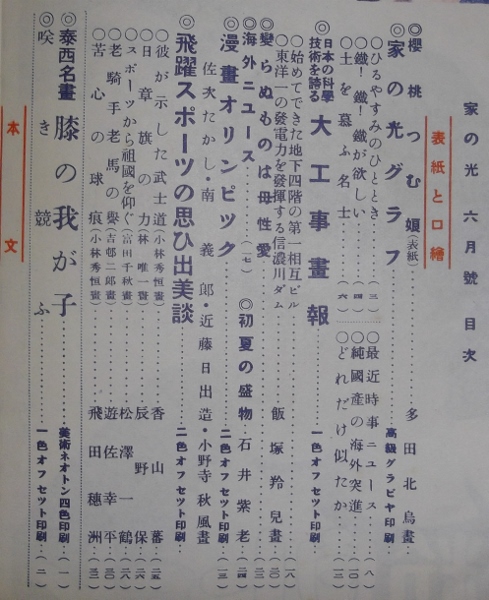 家の光 六月號 目次
表紙と口繪
◎櫻桃つむ娘(表紙)……多田北烏畫
◎家の光グラフ……高級グラビヤ印刷…
○ひるやすみのひととき……(三)
○鐵!鐵!鐵が欲しい……(四)
○土を慕ふ名士……(六)
○最近時事ニュース……(八)
○純國産の海外突進……(一〇)
○どれだけ似たか……(一二)
◎日本の科學技術を誇る 大工事畫報……一色オフセット印刷…
○始めてできた地下四階の第一相互ビル……(一八)
○東洋一の發電力を發揮する信濃川ダム……飯塚羚兒畫…(二〇)
◎變らぬものは母性愛……(二三)
◎海外ニュース……(一七)
◎初夏の盛物……石井紫老…(二四)
◎漫畫オリンピック……二色オフセット印刷…(一三)
佐次たかし・南義郎・近藤日出造・小野寺秋風畫
◎飛躍スポーツの思ひ出美談……二色オフセット印刷…
○彼が示した武士道(小林秀恒畫)……香山蕃…(二五)
○日章旗の力(林唯一畫)……辰野保…(二六)
○スポーツから祖國を仰ぐ(富田千秋畫)……松澤一鶴…(二八)
○老騎手老馬の譽(吉邨二郎畫)……遊佐幸平…(三〇)
○苦心の球痕(小林秀恒畫)……飛田穗洲…(三二)
◎泰西名畫 膝の我が子……美術ネオトン四色印刷…(一)
◎咲き競ふ……一色オフセット印刷…(二)
本文